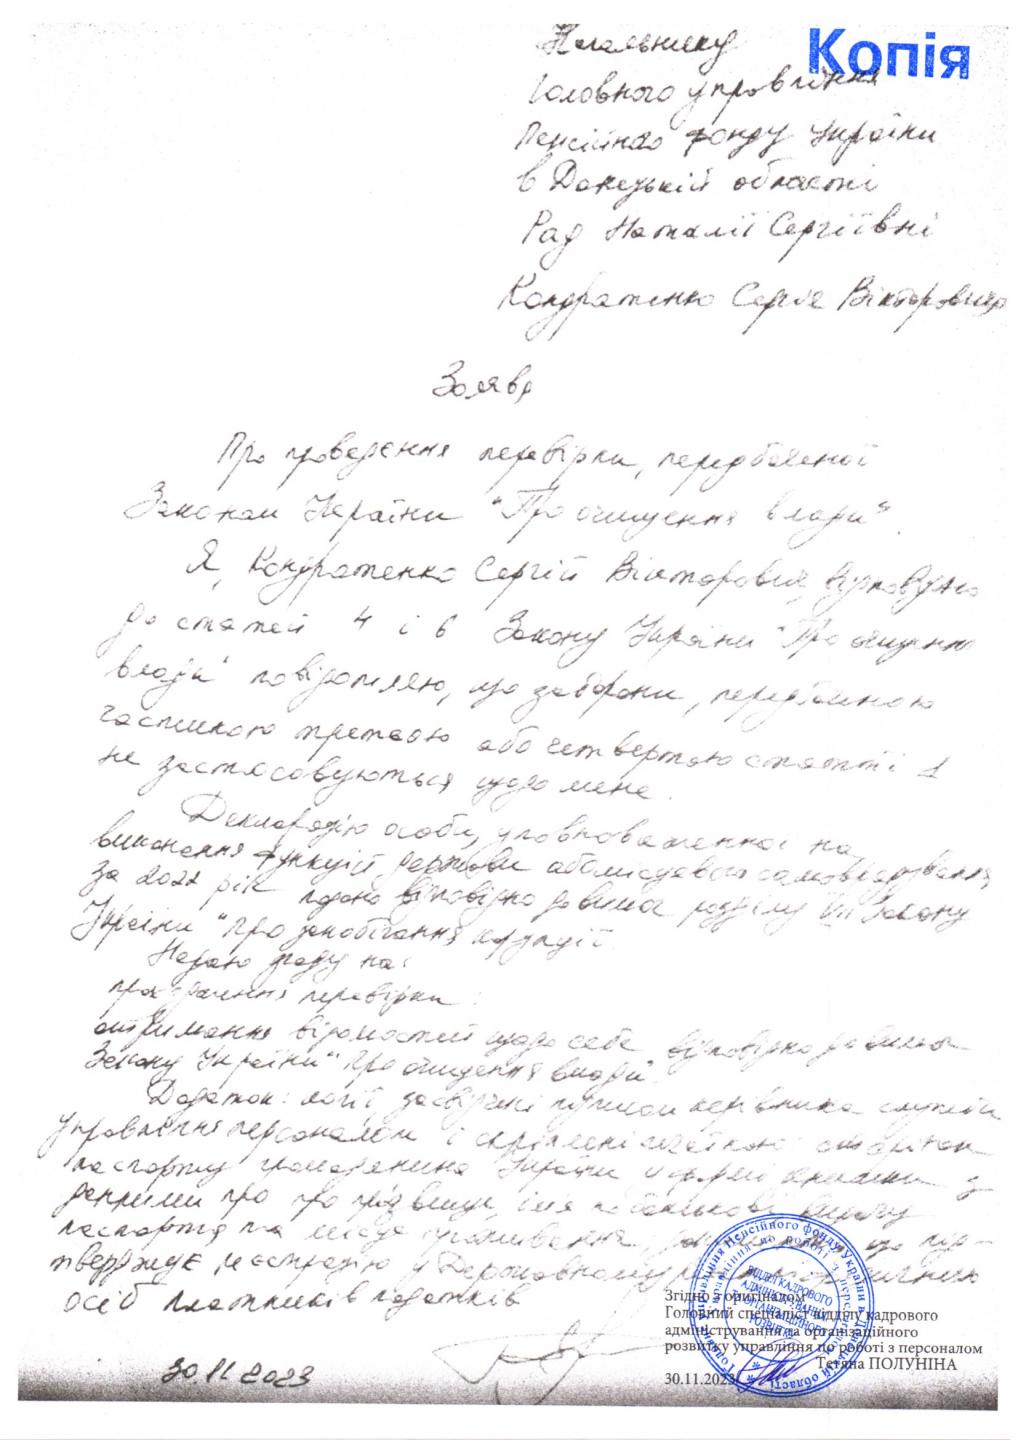 Копія
Начальнику
Головного управління
Пенсійного фонду України
в Донецькій області
Рад Наталії Сергіївні
Кондратенко Сергія Вікторовича
Заява
Про проведення перевірки, передбаченої
Законом України "Про очищення влади".
Я, Кондратенко Сергій Вікторович, відповідно
до статей 4 і 6 Закону України "Про очищення
влади" повідомляю, що заборони, передбачено
частиною третьою або четвертою статті 1
не застосовуються щодо мене.
Декларацію особи, уповноваженої на
виконення функцій держави або місцевого самоврядування
за 2022 рік подано відповідно до вимог розділу VII Закону
України "Про запобігання корупції".
Надаю згоду на:
проходження перевірки;
отримання відомостей щодо себе відповідно до вимог
Закону України "Про очищення влади".
Додаток: копії засвідчені підписом керівника служби
управління персоналом і скріплені печаткою: сторінок
паспорту громадянина України у формі книжки з
даними про прізвище, ім'я по батькові видачу
паспорта та місце проживання, документа що під-
тверджує реєстрацію у Державному реєстрі фізичних
осіб платників податків
30.11.2023
Згідно з оригіналом
Головний спеціаліст відділу кадрового
адміністрування та організаційного
розвитку управління по роботі з персоналом
Тетяна ПОЛУНІНА
30.11.2023
Головне управління Пенсійного фонду України в Донецькій області
Управління по роботі з персоналом
ВІДДІЛ КАДРОВОГО
АДМІНІСТРУВАННЯ
ТА ОРГАНІЗАЦІЙНОГО
РОЗВИТКУ